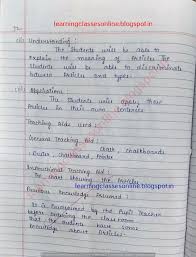 learningclassesonline.blogspot.in
(ii) Understanding :
The Students will be able to
explain the meaning of Articles. The
Students will be able to discriminate
between Articles and types.
(iii) Application :
The Students will apply these
Articles in their own sentences
Teaching Aids used :
General Teaching Aid :
Chalk, chalkboards
Duster, chalkboard, Pointer
Instructional Teaching Aid :
The chart showing the Articles
learningclassesonline.blogspot.in
Previous Knowledge Assumed :
It is Envisaged by the Pupil Teacher
before entering the classroom
that the Students have some
knowledge about Articles.